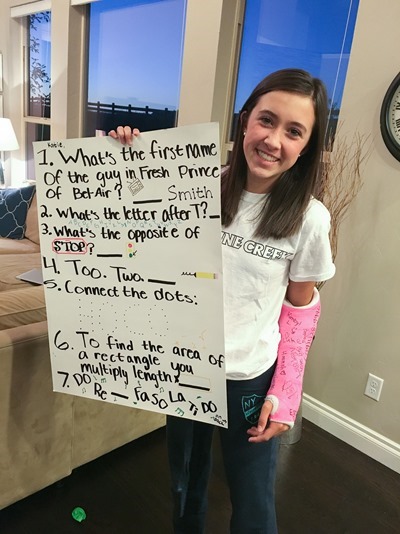 Katie,
1. What's the first name
of the guy in Fresh Prince
of Bel-Air? ___ Smith
2. What's the letter after T? _
3. What's the opposite of
STOP? ___
4. Too. Two. ___
5. Connect the dots:
6. To find the area of
a rectangle you
multiply length x ___
7. DO Re __ Fa SO La Ti DO
NE CREEK
NY